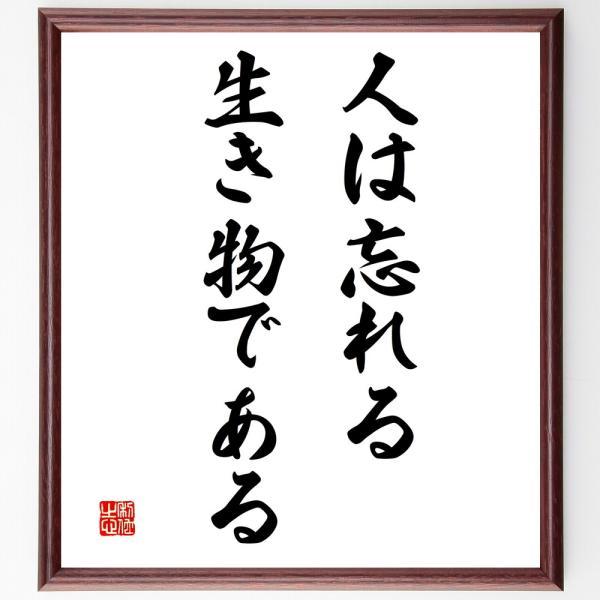 人は忘れる
生き物である